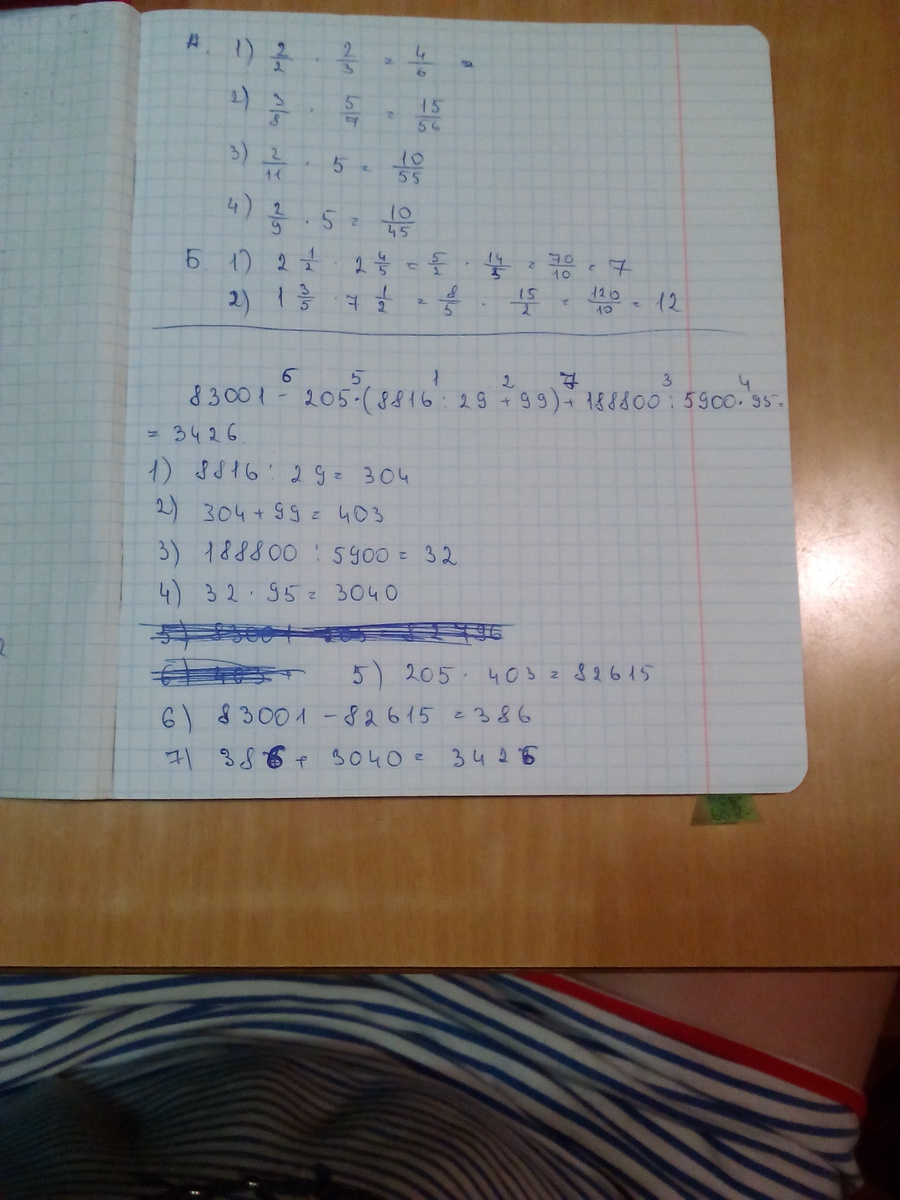 А. 1) 2/2 · 2/3 = 4/6 =
2) 3/8 · 5/7 = 15/56
3) 2/11 · 5 = 10/55
4) 2/9 · 5 = 10/45
Б 1) 2 1/2 · 2 4/5 = 5/2 · 14/5 = 70/10 = 7
2) 1 3/5 · 7 1/2 = 8/5 · 15/2 = 120/10 = 12
6 5 1 2 7 3 4
83001 - 205·(8816 : 29 + 99) + 188800 : 5900 · 95 =
= 3426
1) 8816 : 29 = 304
2) 304 + 99 = 403
3) 188800 : 5900 = 32
4) 32 · 95 = 3040
5) 205 · 403 = 82615
6) 83001 - 82615 = 386
7) 386 + 3040 = 3426